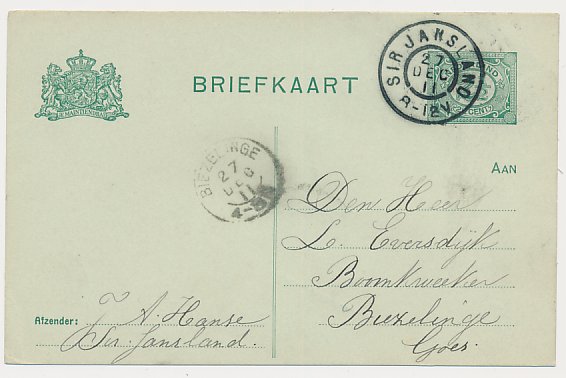 BRIEFKAART
SIRJANSLAND
27
DEC
11
8-12V
BIEZELINGE
27
DEC
11
AAN
Den Heer
L. Eversdijk
Boomkweeker
Biezelinge
Goes.
Afzender: J. A. Hanse
Sir-Jansland.